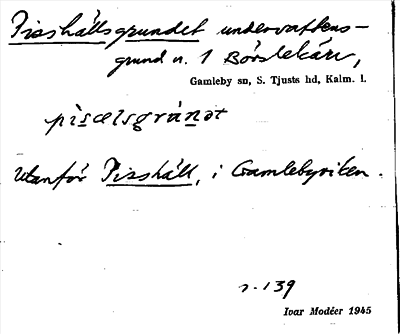 Pisshällsgrundet undervattens-
grund n. 1 Börslekärr,
Gamleby sn, S. Tjusts hd, Kalm. l.
pìsælsgrúnət
utanför Pisshäll, i Gamlebyviken.
r. 139
Ivar Modéer 1945